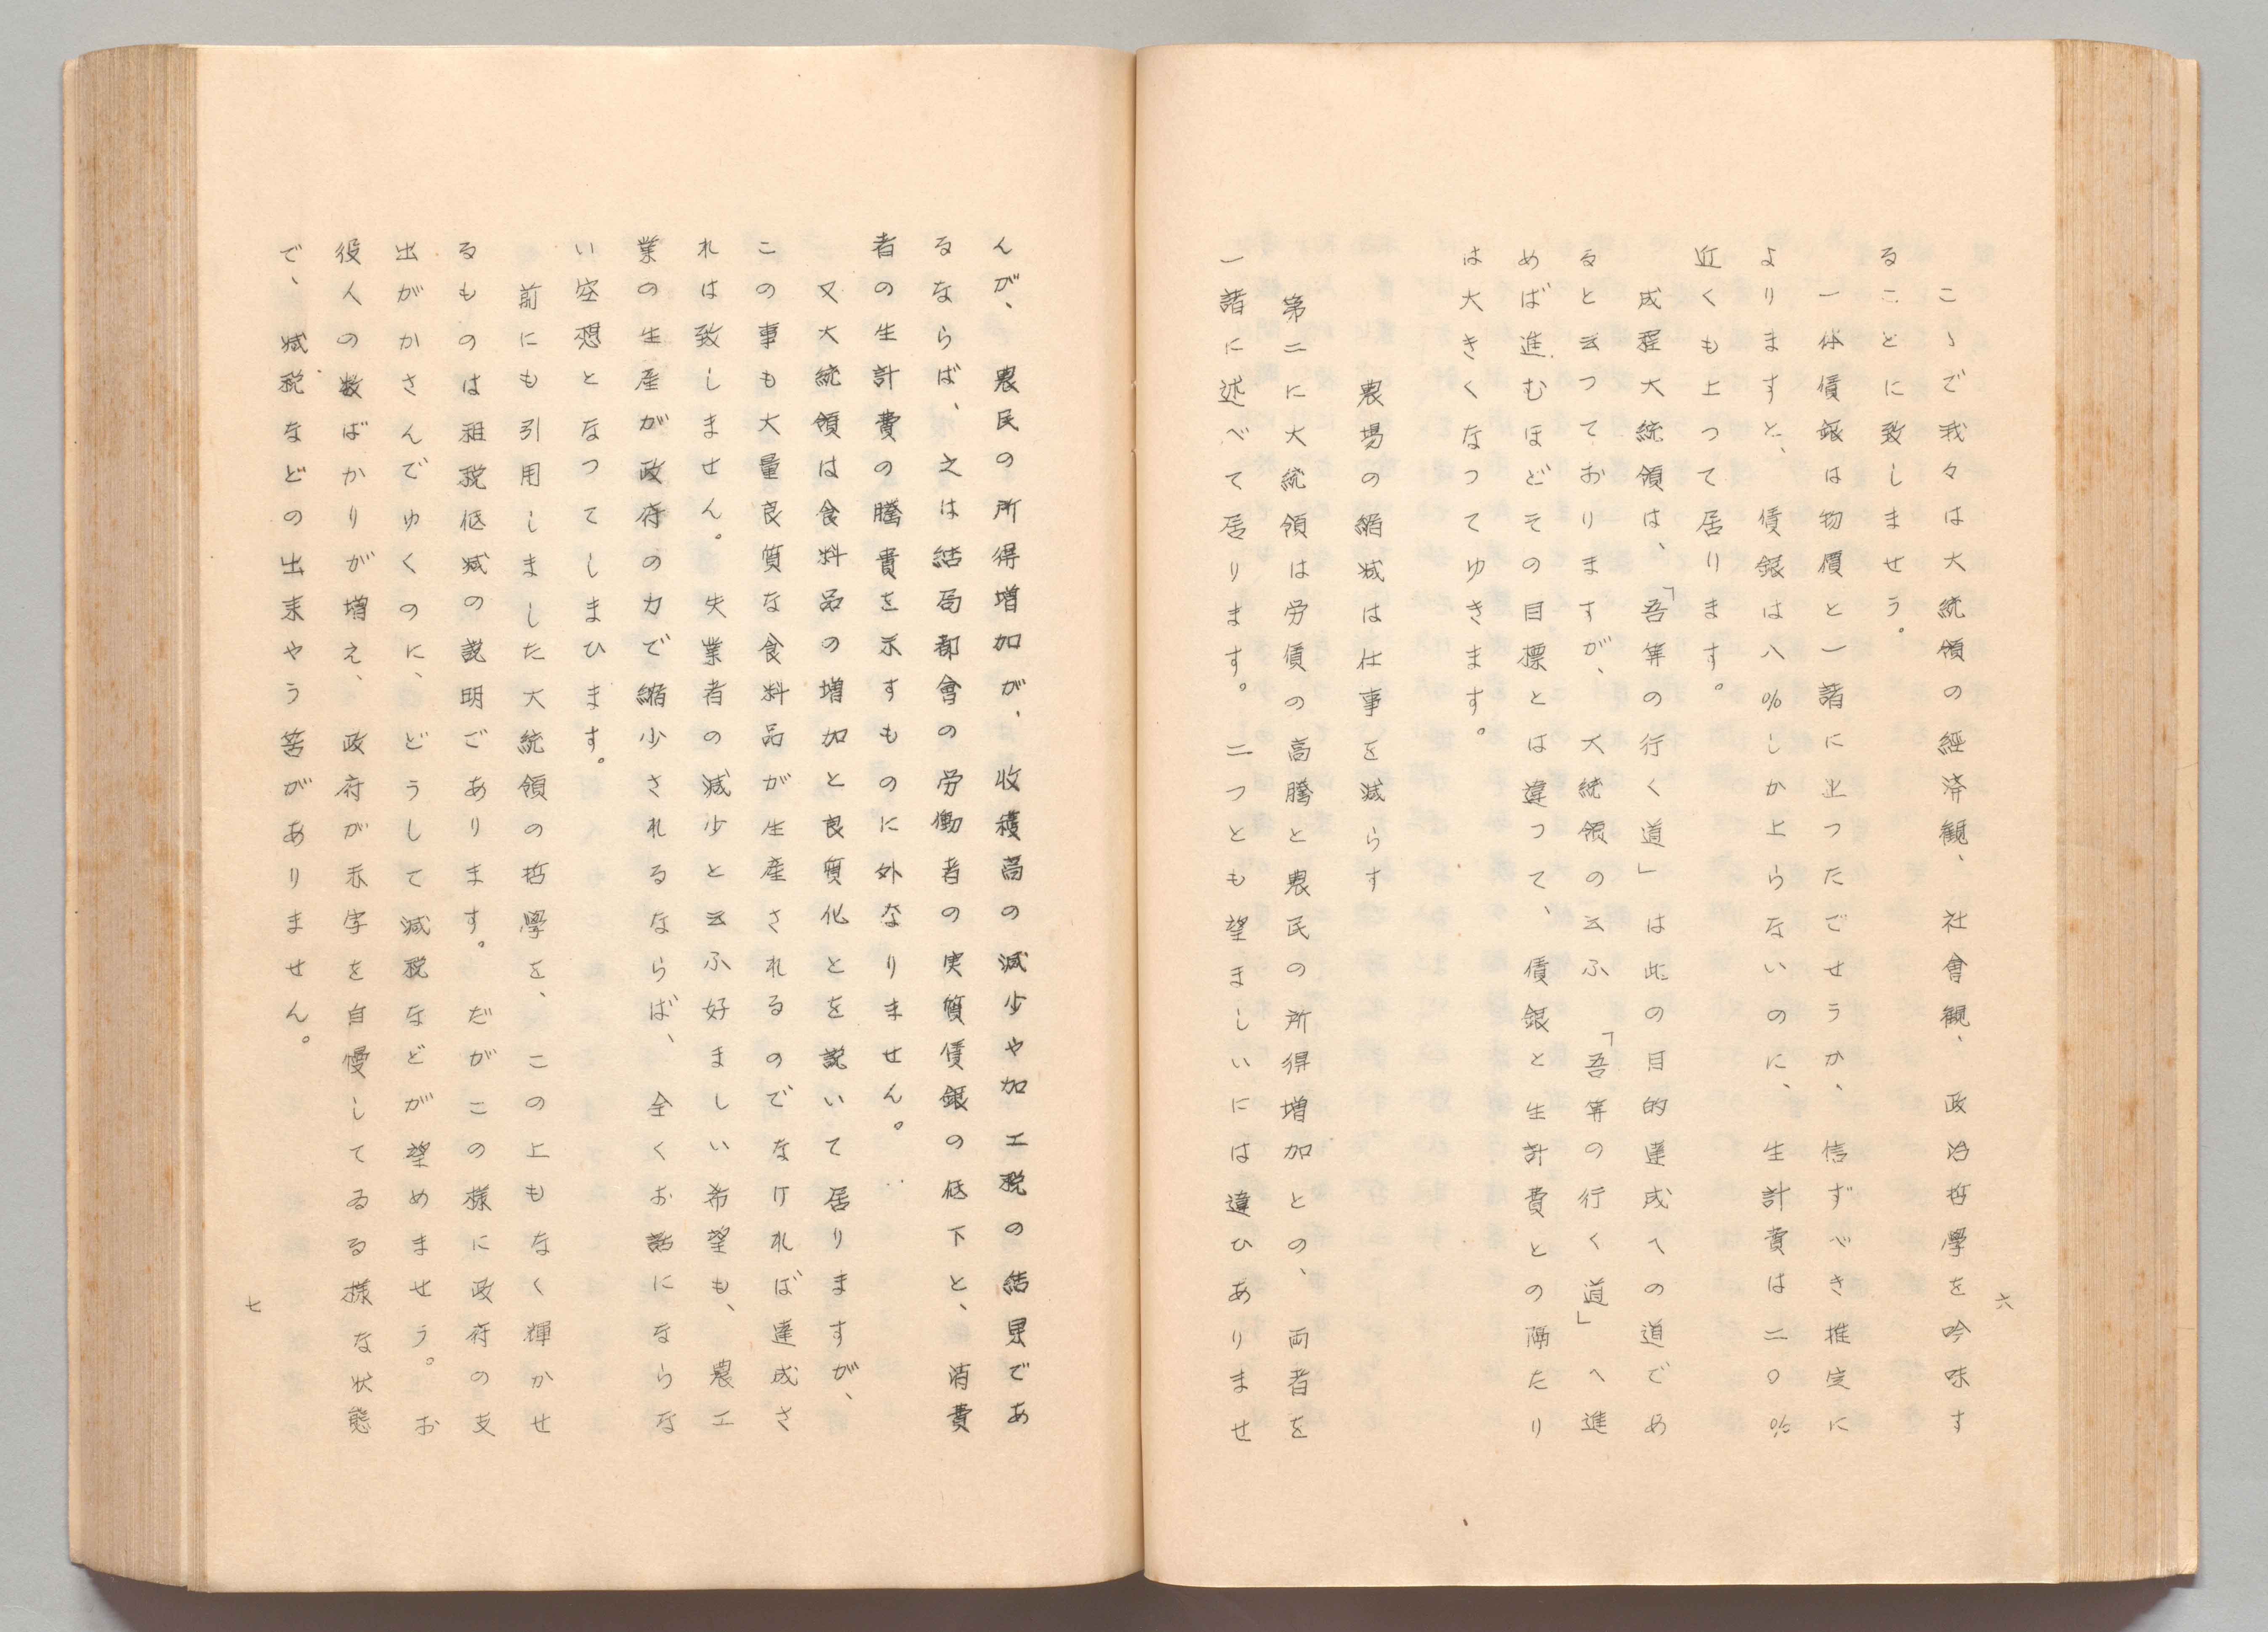 こゝで我々は大統領の經済観、社會観、政治哲學を吟味す
ることに致しませう。
一体賃銀は物價と一諸に上つたでせうか、信ずべき推定に
よりますと、賃銀は八％しか上らないのに、生計費は二〇％
近くも上つて居ります。
成程大統領は、「吾等の行く道」は此の目的達成への道であ
ると云つておりますが、大統領の云ふ「吾等の行く道」へ進
めば進むほどその目標とは違つて、賃銀と生計費との隔たり
は大きくなつてゆきます。
農場の縮減は仕事を減らす
第二に大統領は労賃の高騰と農民の所得増加との、両者を
一諸に述べて居ります。二つとも望ましいには違ひありませ
六
んが、農民の所得増加が、收穫高の減少や加工税の結果であ
るならば、之は結局都會の労働者の実質賃銀の低下と、消費
者の生計費の騰貴を示すものに外なりません。
又大統領は食料品の増加と良質化とを説いて居りますが、
この事も大量良質な食料品が生産されるのでなければ達成さ
れは致しません。失業者の減少と云ふ好ましい希望も、農工
業の生産が政府の力で縮少されるならば、全くお話にならな
い空想となつてしまひます。
前にも引用しました大統領の哲學を、この上もなく輝かせ
るものは租税低減の説明であります。だがこの様に政府の支
出がかさんでゆくのに、どうして減税などが望めませう。お
役人の数ばかりが増え、政府が赤字を自慢してゐる様な状態
で、減税などの出来やう筈がありません。
七